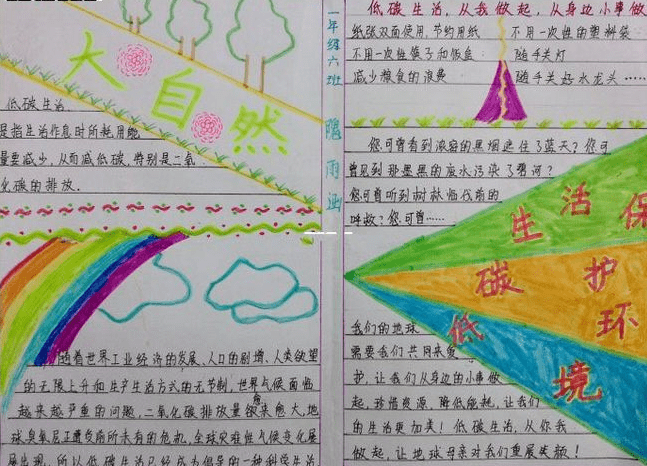 大自然
低碳生活
是指生活作息时所耗用能
量要减少,从而减低碳,特别是二氧
化碳的排放.
一年级六班
随着世界工业经济的发展、人口的剧增、人类欲望
的无限上升和生产生活方式的无节制,世界气候面临
越来越严重的问题,二氧化碳排放量愈来愈大,地
球臭氧层正遭受前所未有的危机,全球灾难性气候变化屡
屡出现,所以低碳生活已经成为倡导的一种科学生活
低碳生活,从我做起,从身边小事做
纸张双面使用,节约用纸 不用一次性的塑料袋
不用一次性筷子和饭盒 随手关灯
减少粮食的浪费 随手关好水龙头……
您可曾看到浓密的黑烟遮住了蓝天?您可
曾见到那墨黑的废水污染了碧河?
您可曾听到树林临伐前的
呼救?您可曾……
低碳生活
保护环境
我们的地球
需要我们共同来爱
护,让我们从身边的小事做
起,珍惜资源、降低能耗,让我们
的生活更加美!低碳生活,从你我
做起,让地球母亲对我们重展美颜!